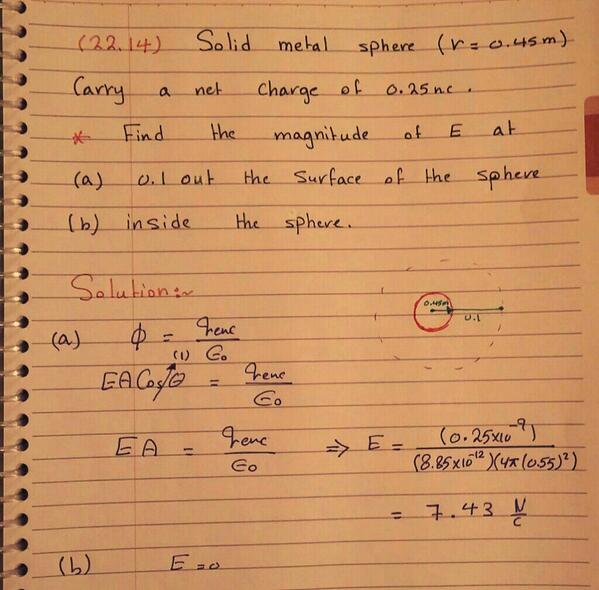 (22.14) Solid metal sphere (r = 0.45m)
Carry a net charge of 0.25nc.
* Find the magnitude of E at
(a) 0.1 out the surface of the sphere
(b) inside the sphere.
Solution:~
0.45m
0.1
(a) ϕ = qenc/ϵ0
EA Cosθ (1) = qenc/ϵ0
EA = qenc/ϵ0 ⇒ E = (0.25x10^-9)/(8.85x10^-12)(4π(0.55)^2)
= 7.43 N/C
(b) E = 0